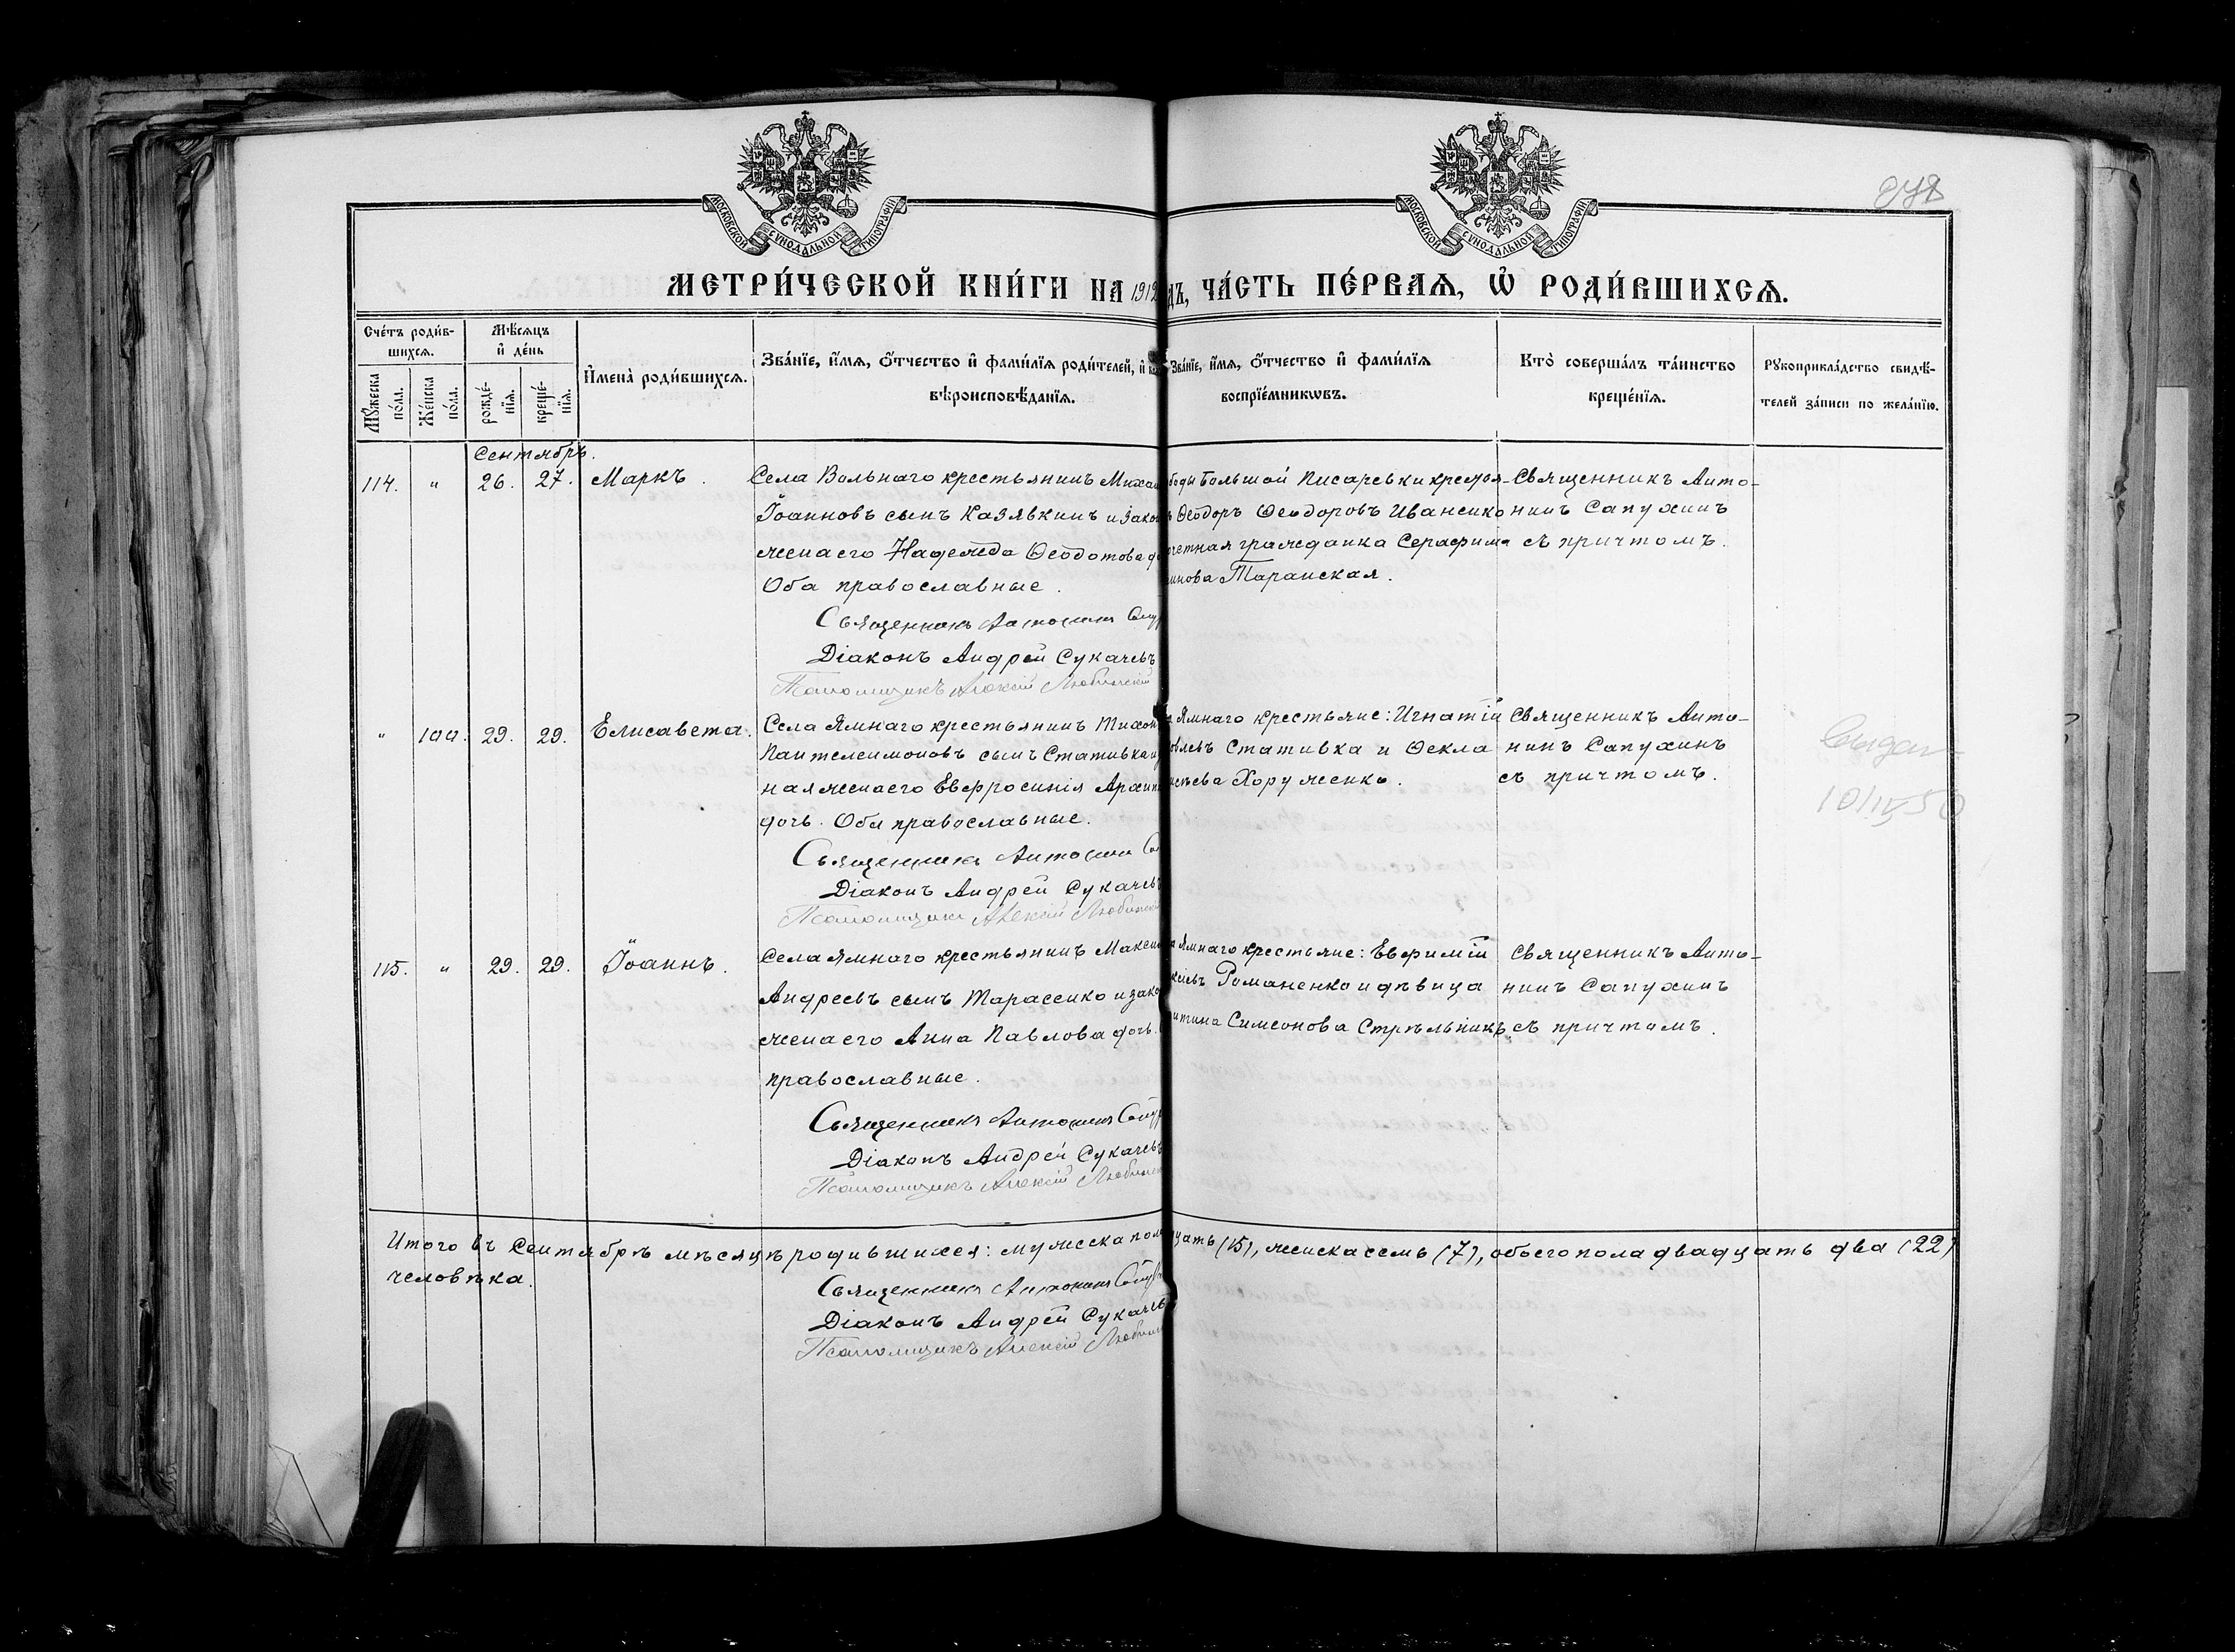 МОСКОВСКОЙ СѴНОДАЛЬНОЙ ТИПОГРАФІИ
МОСКОВСКОЙ СѴНОДАЛЬНОЙ ТИПОГРАФІИ
МЕТРИ́ЧЕСКОЙ КНИ́ГИ НА 1912 ДЪ, ЧА́СТЬ ПЕ́РВАЯ, Ѡ҆ РОДИ́ВШИХСЯ.
Сче́тъ роди́в-
шихся.
Мꙋ́жеска по́ла.
Же́нска по́ла.
Мѣ́сяцъ
и҆ де́нь
рожде́-нїя.
креще́-нїя.
И҆мена̀ роди́вшихся.
Зва́нїе, и҆́мя, ѻ҆́тчество и҆ фами́лїя роди́телей, и҆
вѣроисповѣ́данїя.
Зва́нїе, и҆́мя, ѻ҆́тчество и҆ фами́лїя
воспрїе́мникѡвъ.
Кто̀ соверша́лъ та́инство
креще́нїя.
Рꙋкоприкла́дство свидѣ́-
телей за́писи по жела́нїю.
Сентябрь.
114. " 26. 27. Маркъ.
Села Вольнаго крестьянинъ Михаи
Іоанновъ сынъ Казявкинъ и зако
жена его Надежда Ѳеодотова д
Оба православные.
Священникъ Антонинъ
Діаконъ Андрей Сукачевъ
Псаломщикъ Алексій Любинскій
боды Большой Писаревки крестья-
ъ Ѳеодоръ Ѳеодоровъ Иваненко
четная гражданка Серафима
инова Таранская.
Священникъ Анто-
нинъ Сапухинъ
съ причтомъ.
" 100. 29. 29. Елисавета.
Села Ямнаго крестьянинъ Тихон
Пантелеимоновъ сынъ Стативка и
ная жена его Евфросинія Архип
дочь. Оба православные.
Священникъ Антонинъ
Діаконъ Андрей Сукачевъ
Псаломщикъ Алексій Любинскій
а Ямнаго крестьяне: Игнатій
овлевъ Стативка и Ѳекла
сѣева Хоруженко.
Священникъ Анто-
нинъ Сапухинъ
съ причтомъ.
10/IV 50
115. " 29. 29. Іоаннъ.
Села Ямнаго крестьянинъ Макси
Андреевъ сынъ Тарасенко и зако
жена его Анна Павлова дочь.
православные.
Священникъ Антонинъ
Діаконъ Андрей Сукачевъ
Псаломщикъ Алексій Любинск
а Ямнаго крестьяне: Евфимій
ксѣевъ Романенко и дѣвица
итина Симеонова Стрѣльникъ
Священникъ Анто-
нинъ Сапухинъ
съ причтомъ.
Итого въ Сентябрѣ мѣсяцѣ родившихся: мужеска пола цать (15), женска семь (7), обоего пола двадцать два (22)
человѣка.
Священникъ Антонинъ
Діаконъ Андрей Сукачев
Псаломщикъ Алексій Любинс